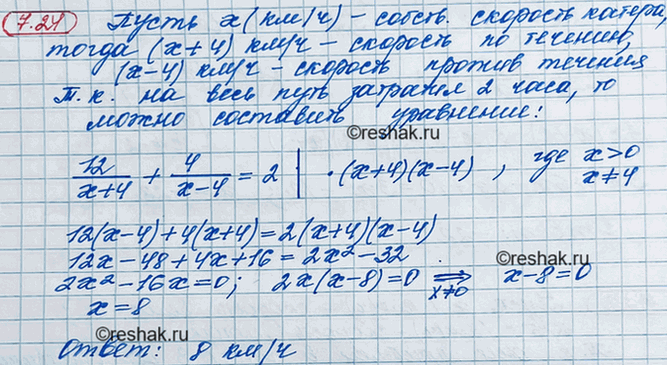 7.24 Пусть x (км/ч) – собств. скорость катера,
тогда (x+4) км/ч – скорость по течению,
(x-4) км/ч – скорость против течения
Т.к. на весь путь затратил 2 часа, то
можно составить уравнение:
©reshak.ru
12/(x+4) + 4/(x-4) = 2 | · (x+4)(x-4) , где x>0
x≠4
12(x-4)+4(x+4)=2(x+4)(x-4)
12x-48+4x+16=2x²-32
©reshak.ru
2x²-16x=0; 2x(x-8)=0 ⟹ x-8=0
x≠0
x=8
©reshak.ru
Ответ: 8 км/ч